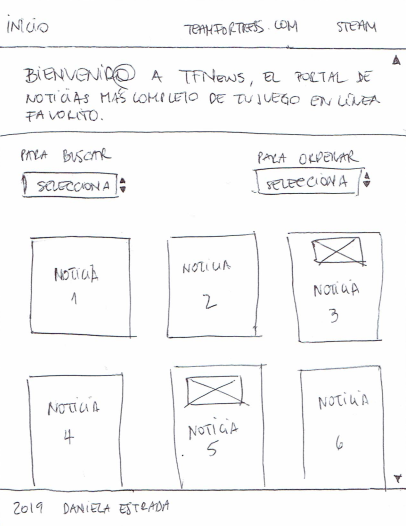 INICIO TEAMFORTRESS.COM STEAM
BIENVENID@ A TFNEWS, EL PORTAL DE
NOTICIAS MÁS COMPLETO DE TU JUEGO EN LÍNEA
FAVORITO.
PARA BUSCAR PARA ORDENAR
SELECCIONA SELECCIONA
NOTICIA
1
NOTICIA
2
NOTICIA
3
NOTICIA
4
NOTICIA
5
NOTICIA
6
2019 DANIELA ESTRADA